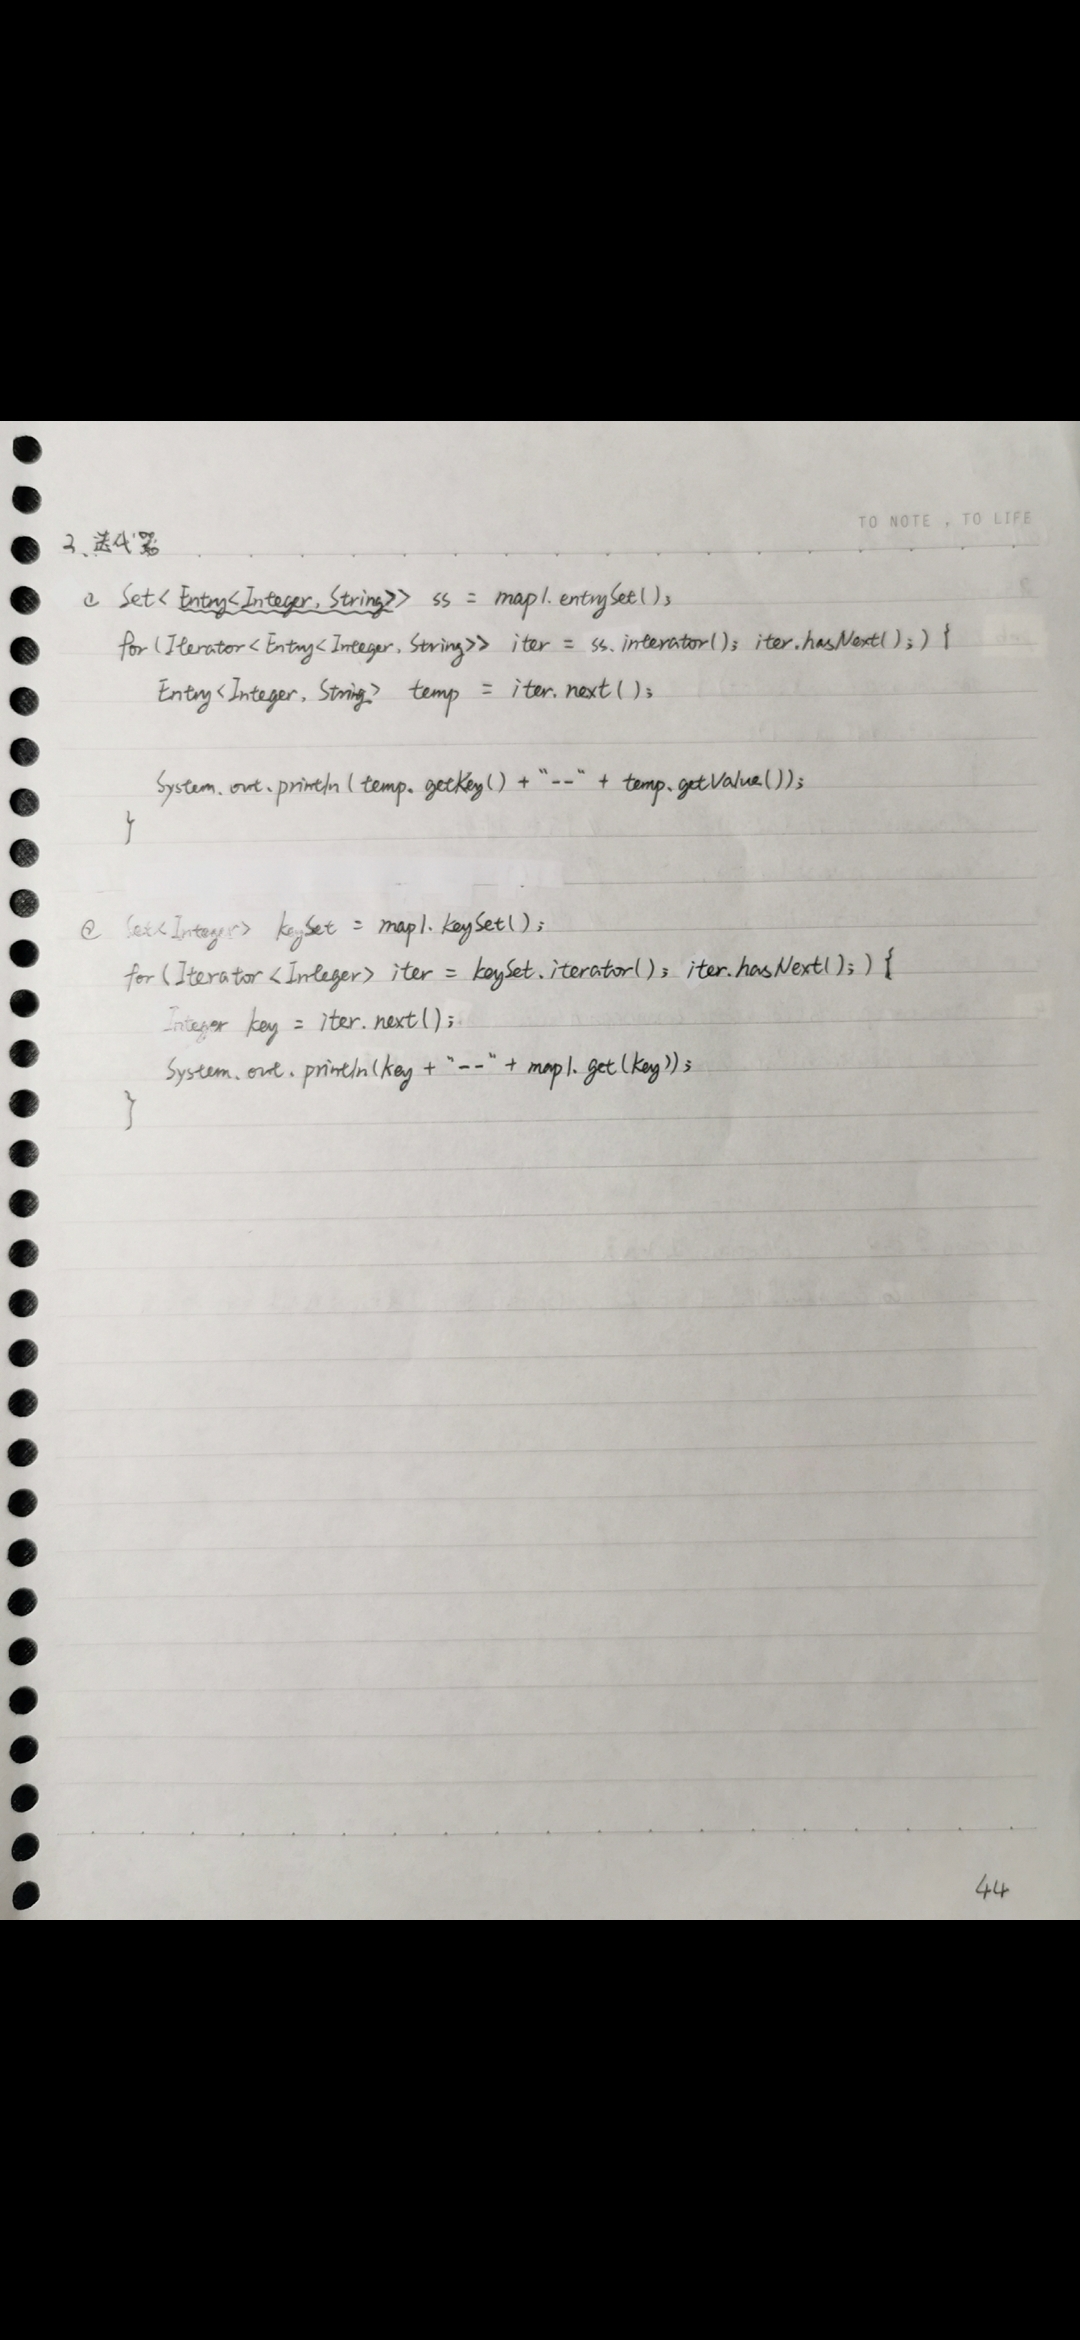 TO NOTE , TO LIFE
3、迭代器
① Set<Entry<Integer, String>> ss = map1.entrySet();
for(Iterator<Entry<Integer, String>> iter = ss.interator(); iter.hasNext();) {
Entry<Integer, String> temp = iter.next();
System.out.println(temp.getKey() + "--" + temp.getValue());
}
② Set<Integer> keySet = map1.keySet();
for(Iterator<Integer> iter = keySet.iterator(); iter.hasNext();) {
Integer key = iter.next();
System.out.println(key + "--" + map1.get(key));
}
44